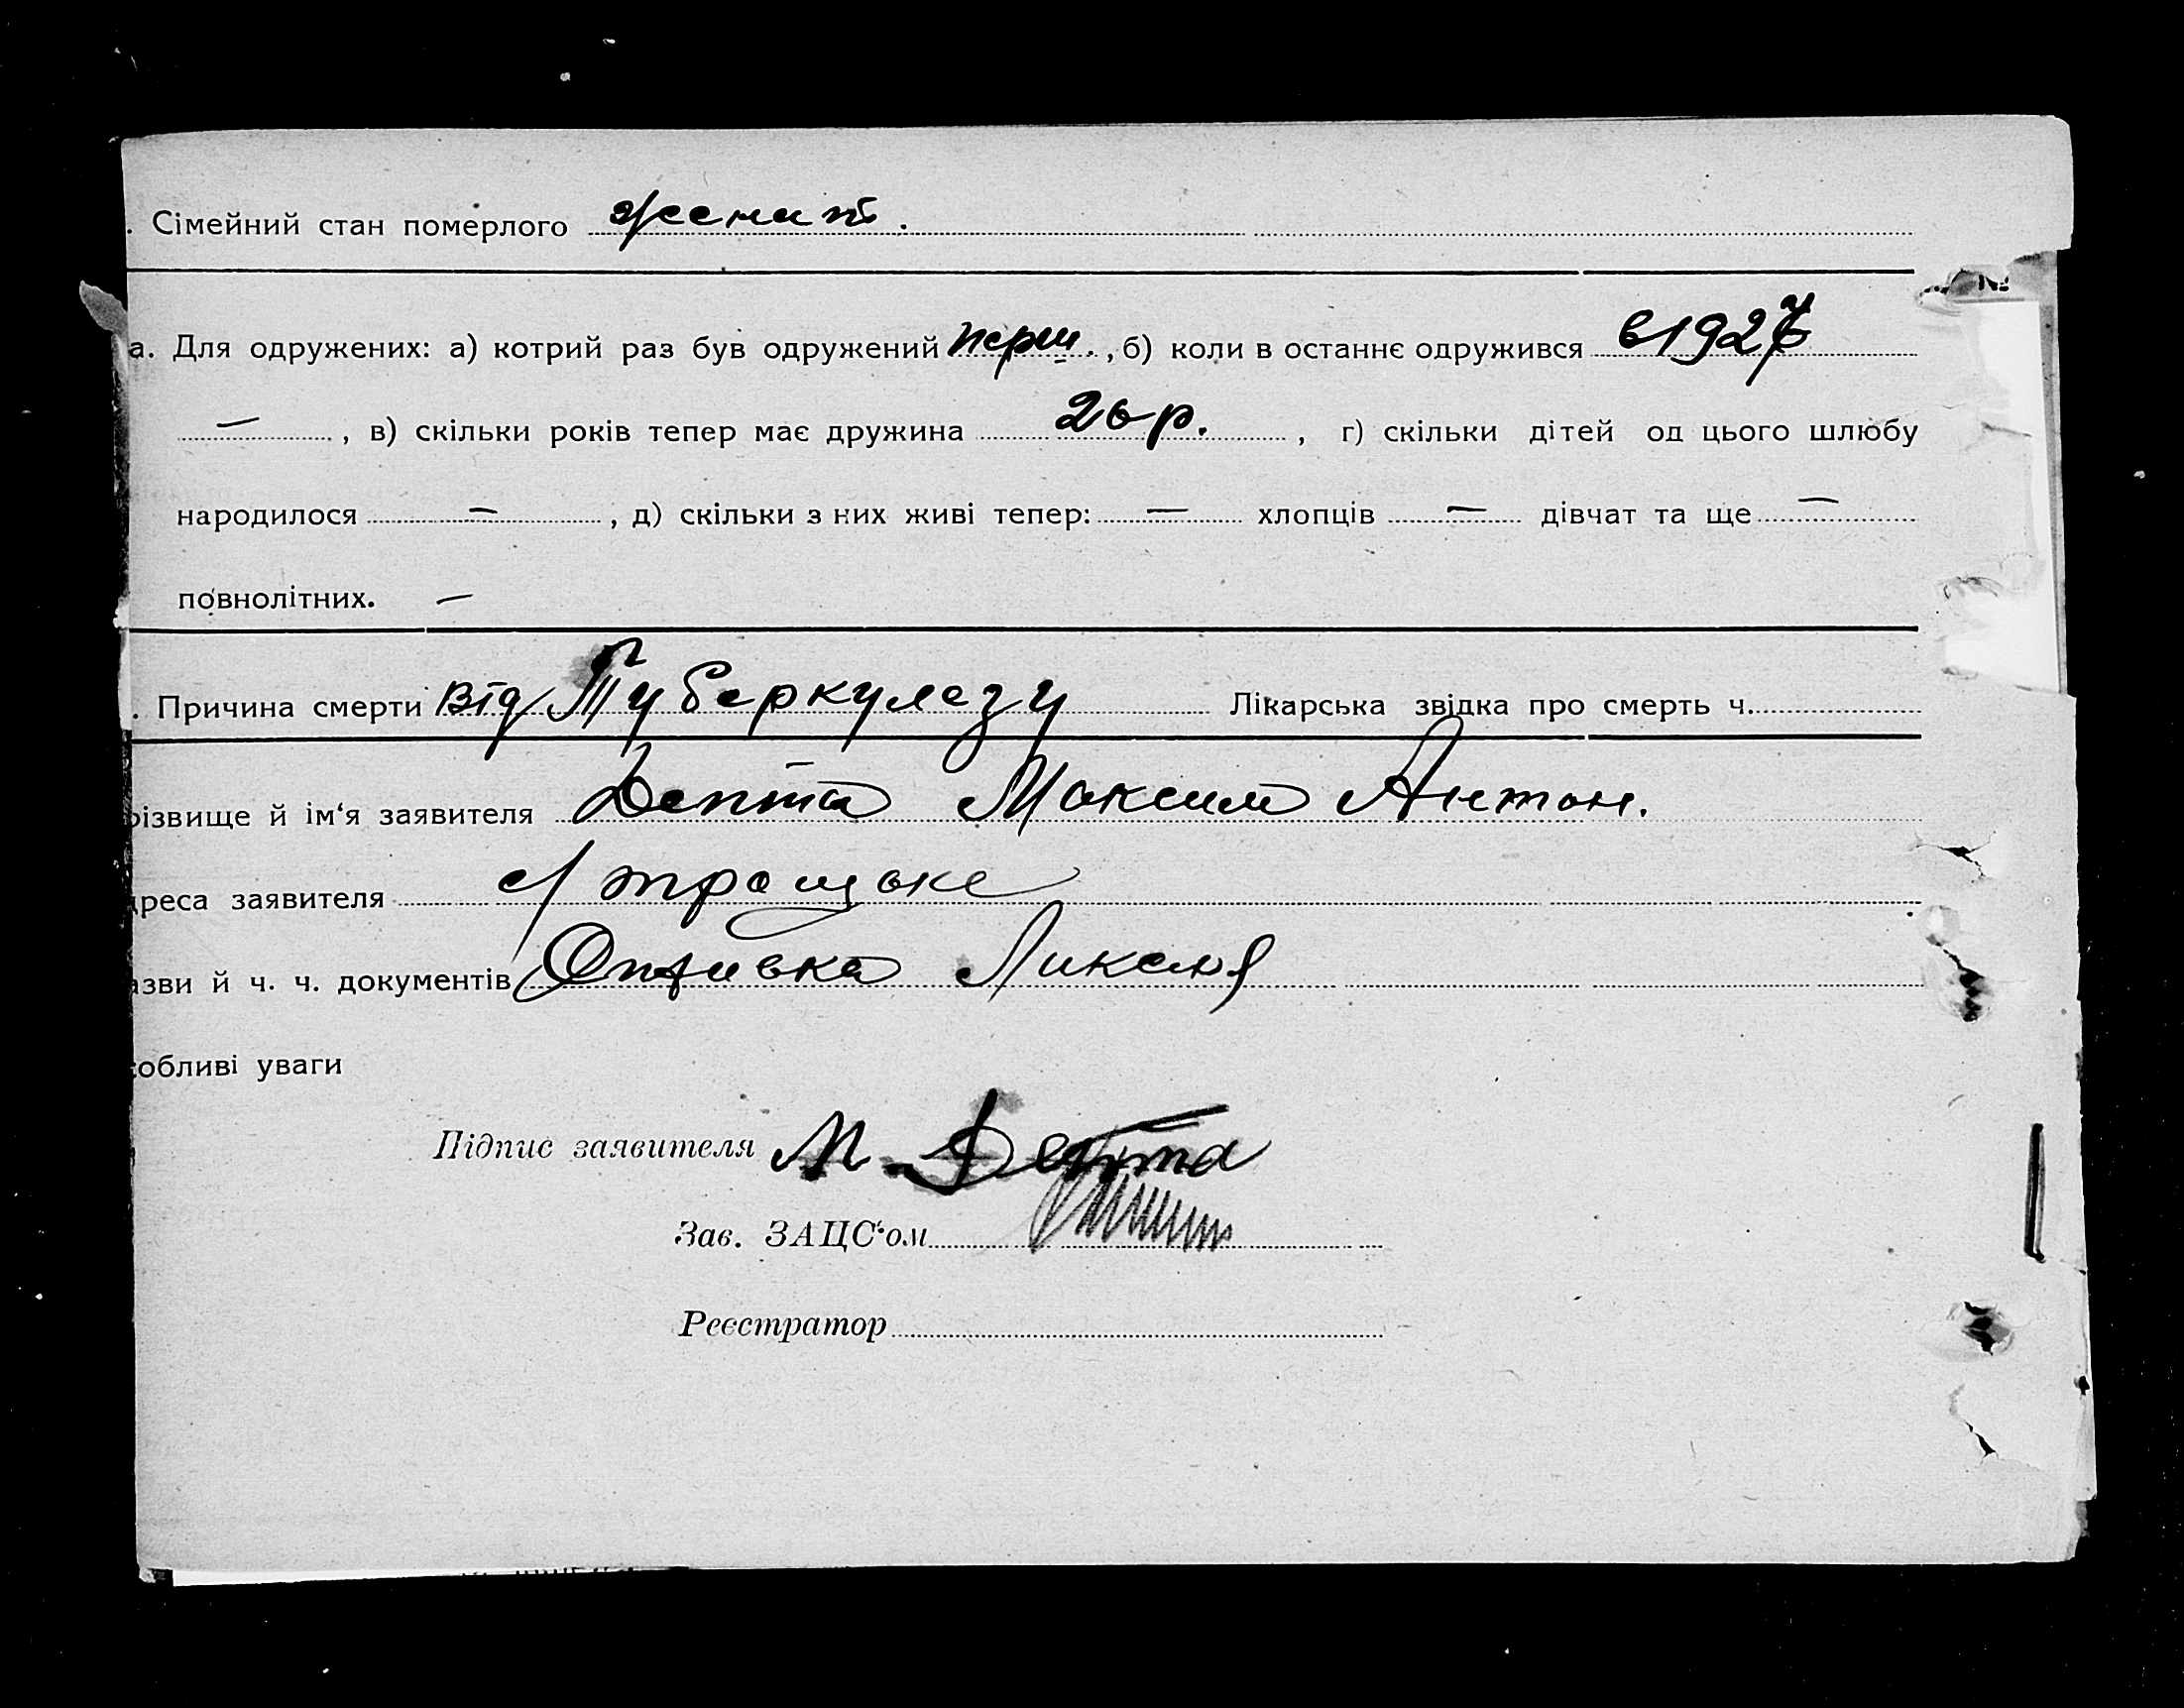 . Сімейний стан померлого женат.
№
а. Для одружених: а) котрий раз був одружений перш. , б) коли в останнє одружився в 1927
— , в) скільки років тепер має дружина 20 р. , г) скільки дітей од цього шлюбу
народилося — , д) скільки з них живі тепер: — хлопців — дівчат та ще —
повнолітних. —
. Причина смерти від Туберкулезу Лікарська звідка про смерть ч.
різвище й ім‘я заявителя Депта Максим Антон.
дреса заявителя
азви й ч. ч. документів
обливі уваги
Підпис заявителя М. Депта
Зав. ЗАЦС‘ом
Реєстратор